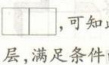 ,可知
层,满足条件